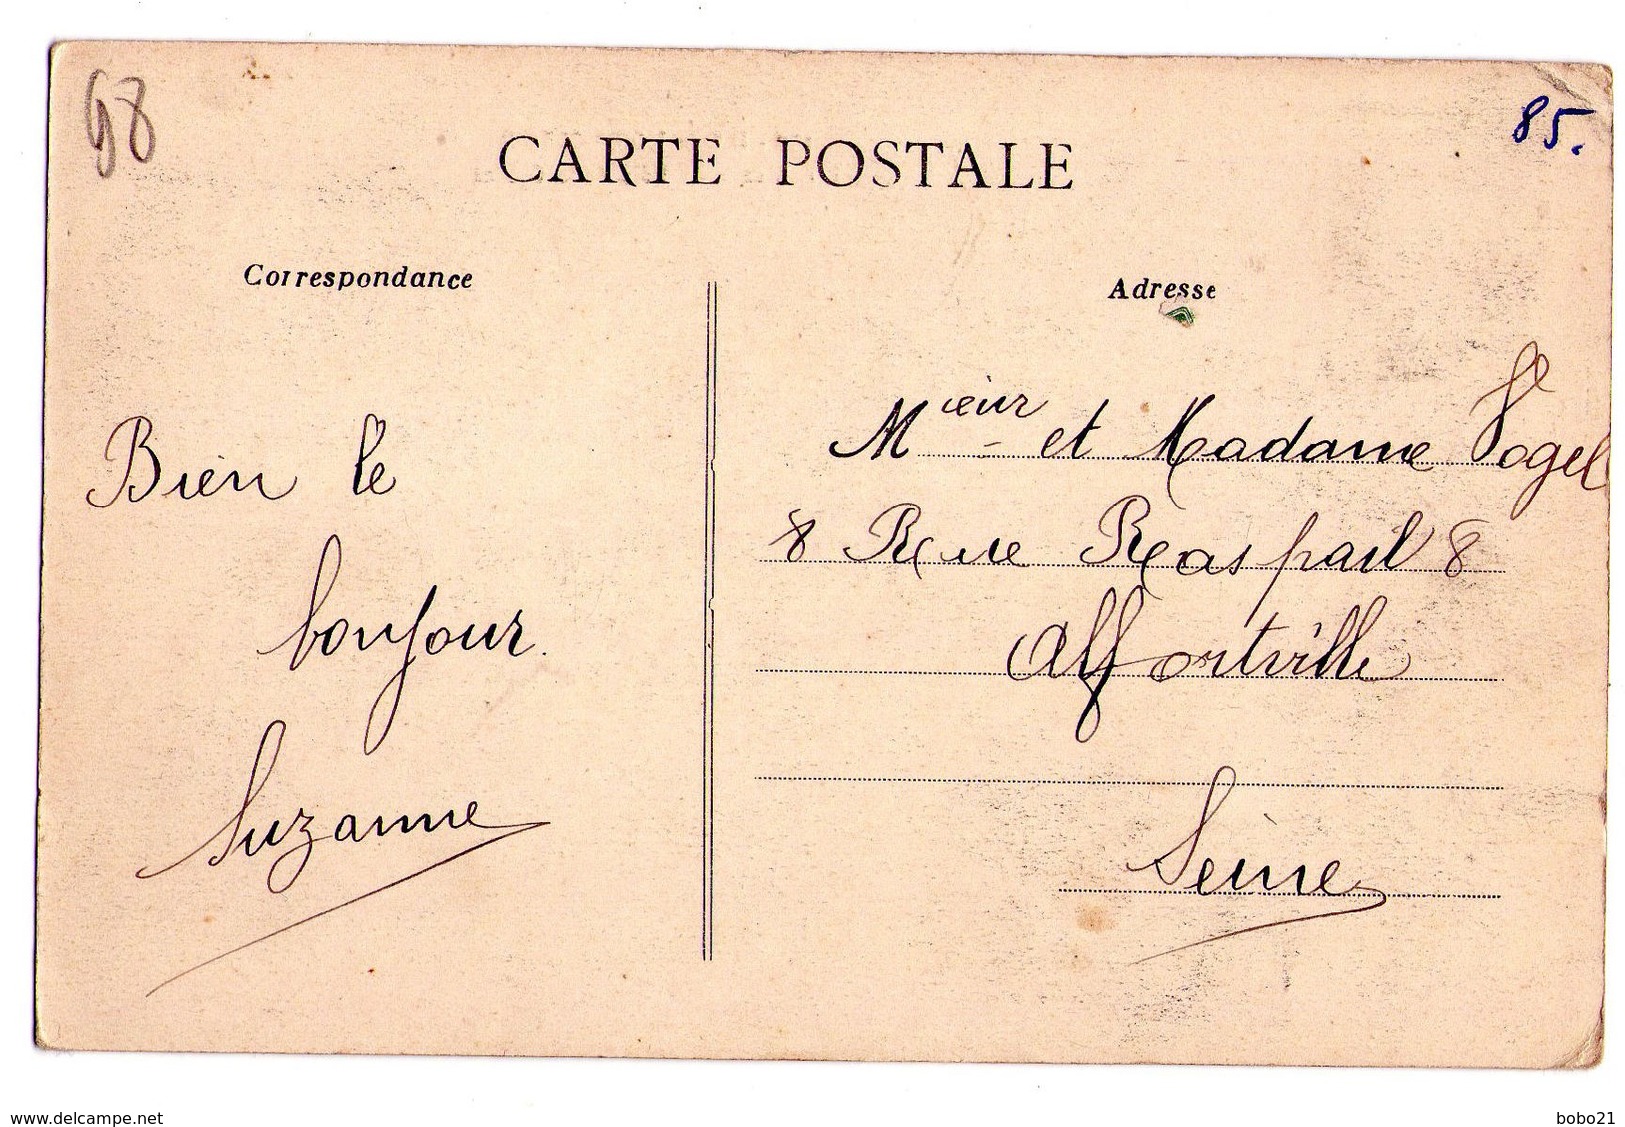 98
85.
CARTE POSTALE
Correspondance
Adresse
Bien le
bonjour.
Suzanne
Mieur et Madame Vogel
8 Rue Raspail 8
Alfortville
Seine
www.delcampe.net
bobo21